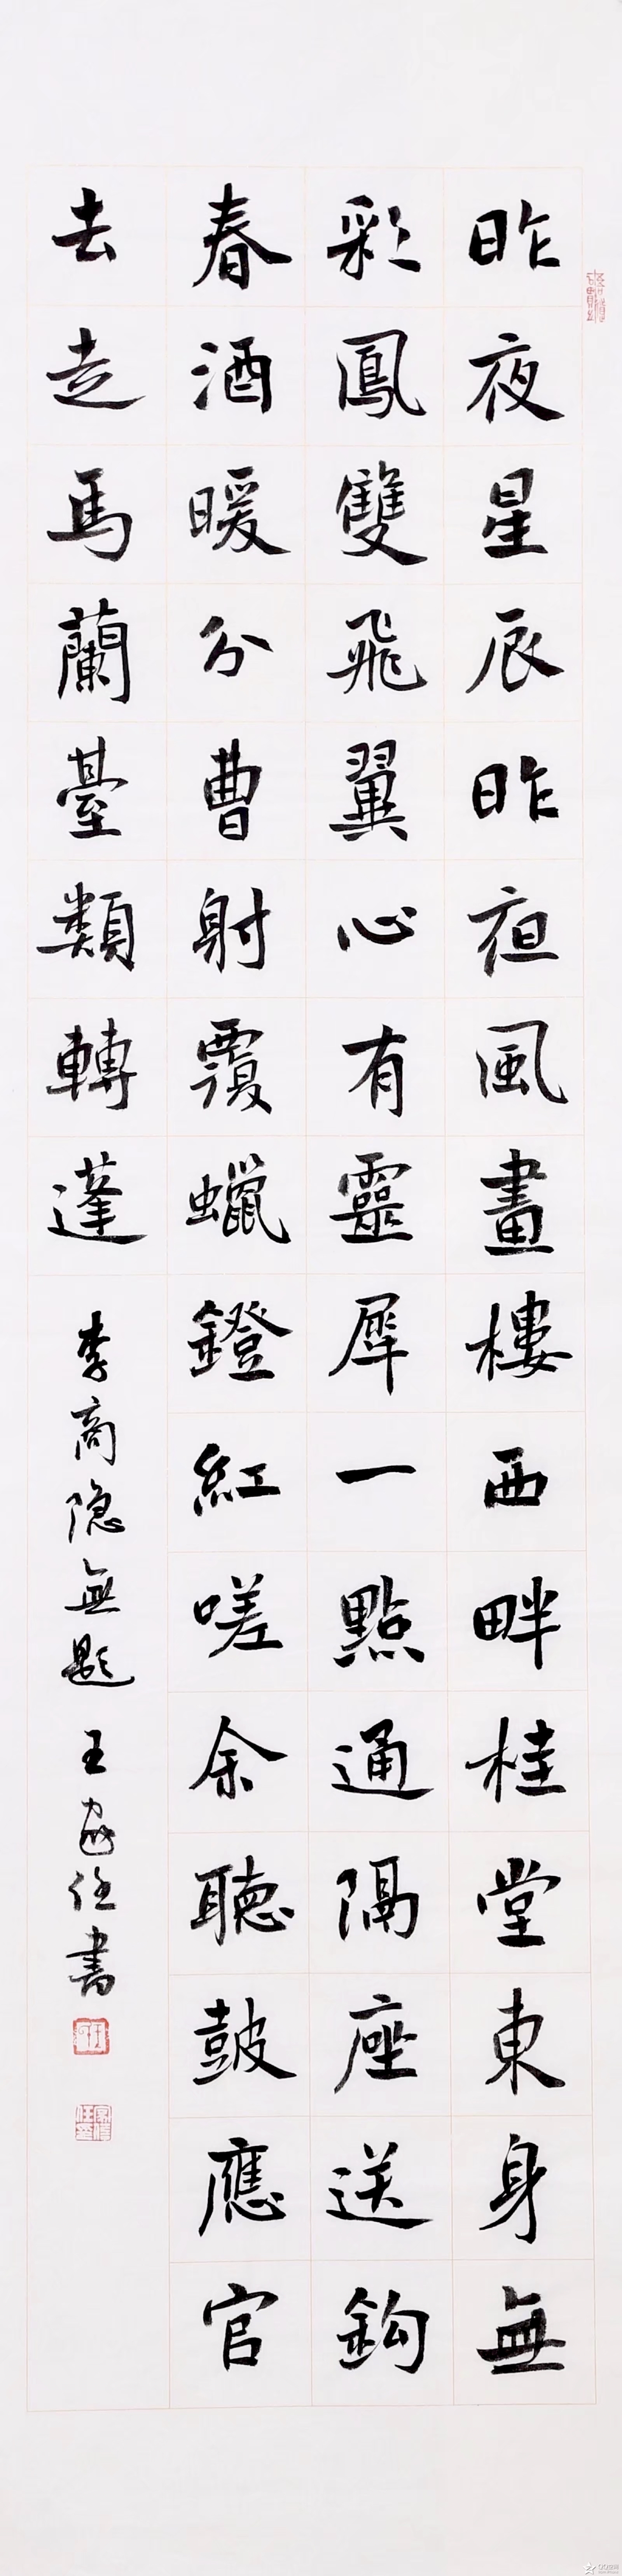 昨夜星辰昨夜風畫樓西畔桂堂東身無
彩鳳雙飛翼心有靈犀一點通隔座送鈎
春酒暖分曹射覆蠟鐙紅嗟余聽鼓應官
去走馬蘭臺類轉蓬
李商隐無題 王家任書